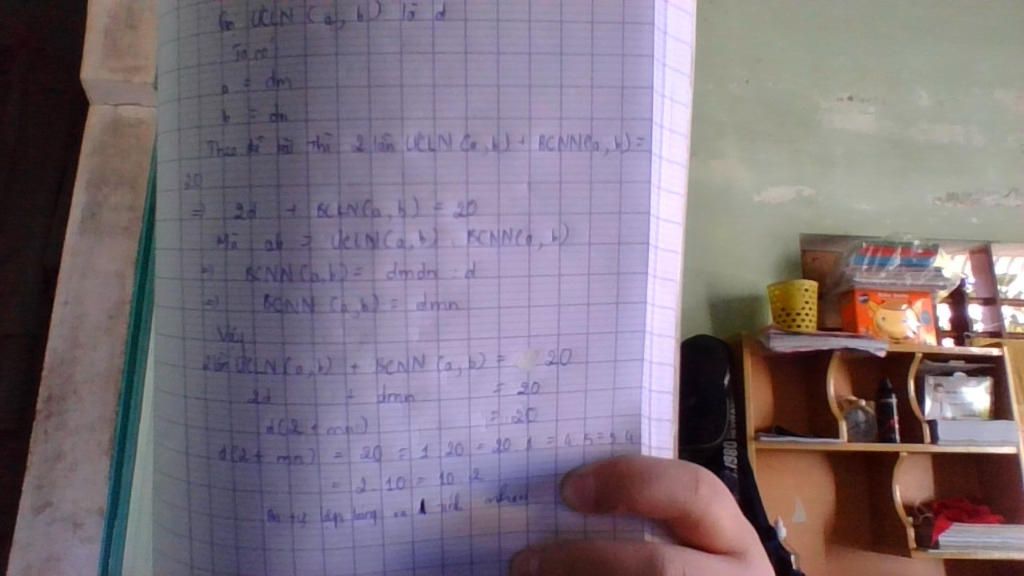 ƯCLN (a, b) là d
Ta có
a = dm
b = dn
Theo đề bài thì 2 lần ƯCLN (a, b) + BCNN(a, b) =
20
=> 2d + BCLN(a, b) = 20
Mà ab = ƯCLN(a, b) . BCNN(a, b)
=> BCNN(a,b) = dmdn : d
=> BCNN (a, b) = dmn
Vậy
2 lần ƯCLN(a, b) + BCNN (a, b) = 20
2d + dmn = 20
d(2 + mn) = 20
d(2 + mn) = 20 = 1 . 20 = 20 . 1 = 4 . 5 = 5 . 4
= 2 . 10 = 10 . 2
tự lập bảng
1980